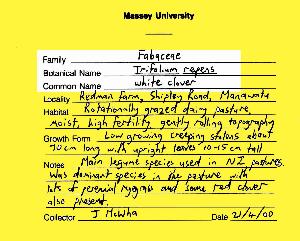 Massey University
Family Fabaceae
Botanical Name Trifolium repens
Common Name white clover
Locality Redman Farm, Shipley Road, Manawatu
Habitat Rotationally grazed dairy pasture.
Moist, high fertility, gently rolling topography
Growth Form Low growing creeping stolons about
10cm long with upright leaves 10-15cm tall
Notes Main legume species used in NZ pastures.
Was dominant species in the pasture with
lots of perennial ryegrass and some red clover
also present.
Collector J McWha Date 21/4/00